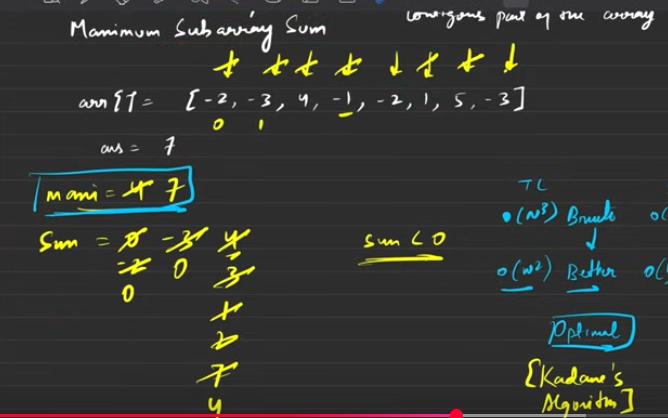 Maximum Subarray Sum
contiguous part of the array
arr[] = [-2, -3, 4, -1, -2, 1, 5, -3]
0 1
ans = 7
maxi = 4 7
Sum = 0 -3 4
-2 0 3
0
1
2
7
4
sum < 0
TC
O(N³) Brute O(
O(N²) Better O(
Optimal
[Kadane's
Algorithm]